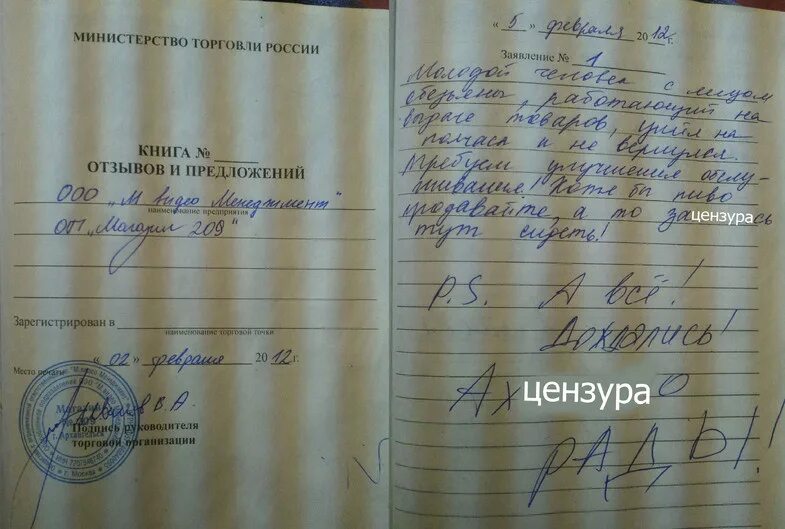 МИНИСТЕРСТВО ТОРГОВЛИ РОССИИ
КНИГА №
ОТЗЫВОВ И ПРЕДЛОЖЕНИЙ
ООО „М видео Менеджмент"
наименование предприятия
ОП „Магазин 209"
Зарегистрирован в
наименование торговой точки
" 02 " февраля 2012 г.
Место печати
Иванов В. А.
Подпись руководителя
торговой организации
Магазин
№ 209
г. Архангельск
г. Москва
" 5 " февраля 2012 г.
Заявление № 1
Молодой человек с лицом
обезьяны, работающий на
выдаче товаров, ушёл на
полчаса и не вернулся.
Требуем улучшения обслу-
живания! Хотя бы пиво
продавайте, а то за цензура сь
тут сидеть!
P.S. А всё!
Дождались!
Ах цензура О
РАДЫ!